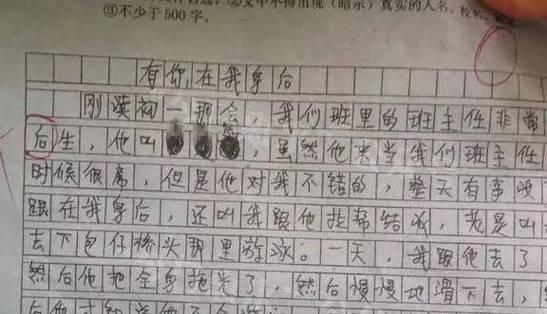 ③不少于500字。
有你在我身后
刚读初一那会，我们班里的班主任非常
后生，他叫，虽然他来当我们班主任
时候很常，但是他对我不错的，整天有事没
跟在我身后，还叫我跟他拉帮结派，老是叫
去下包仔桥头那里游泳。一天，我跟他去了
然后他把全身拖光了，然后慢慢地滑下去，